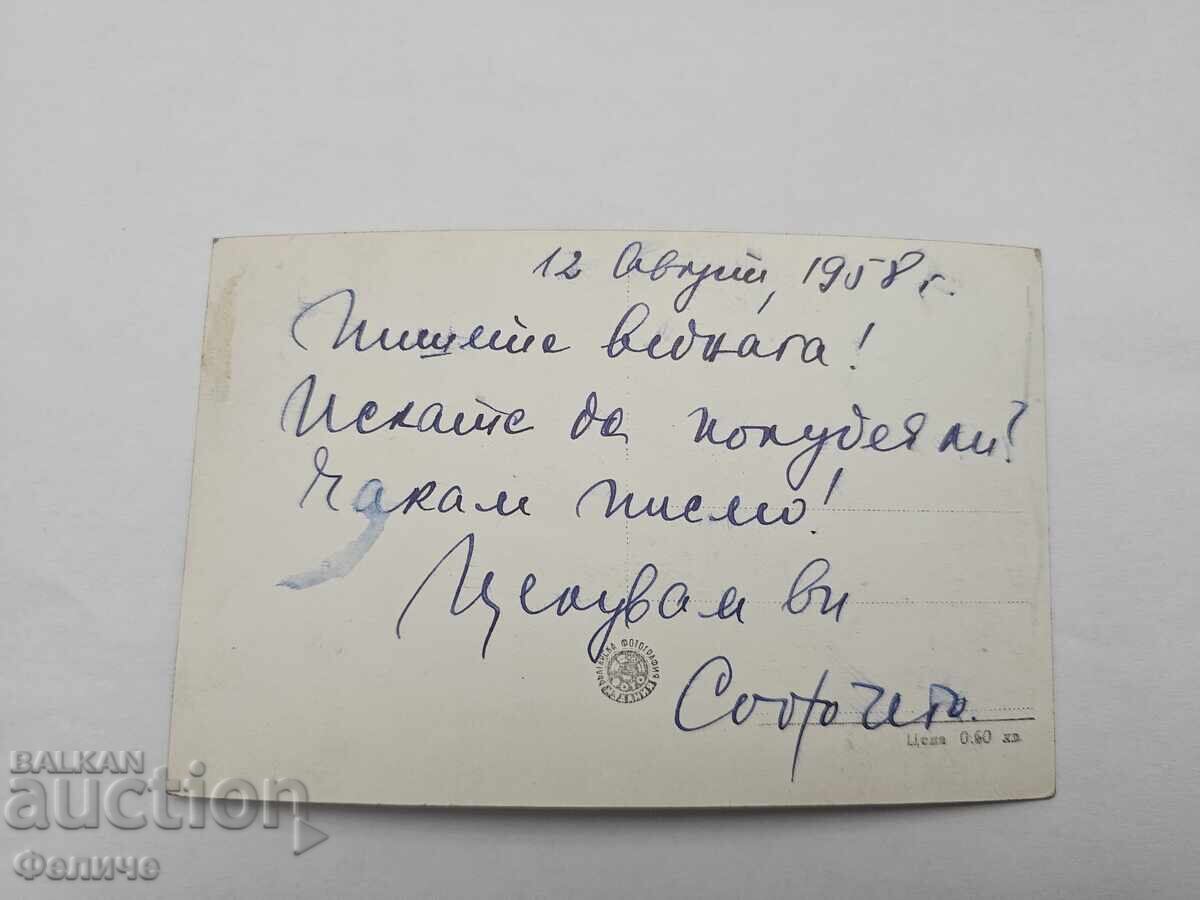 12 Август, 1958 г.
Пишете веднага!
Искате да полудея ли?
Чакам писмо!
Целувам ви
БЪЛГАРСКА ФОТОГРАФИЯ
Софчето.
Цена 0.60 лв
BALKAN
auction
Феличе